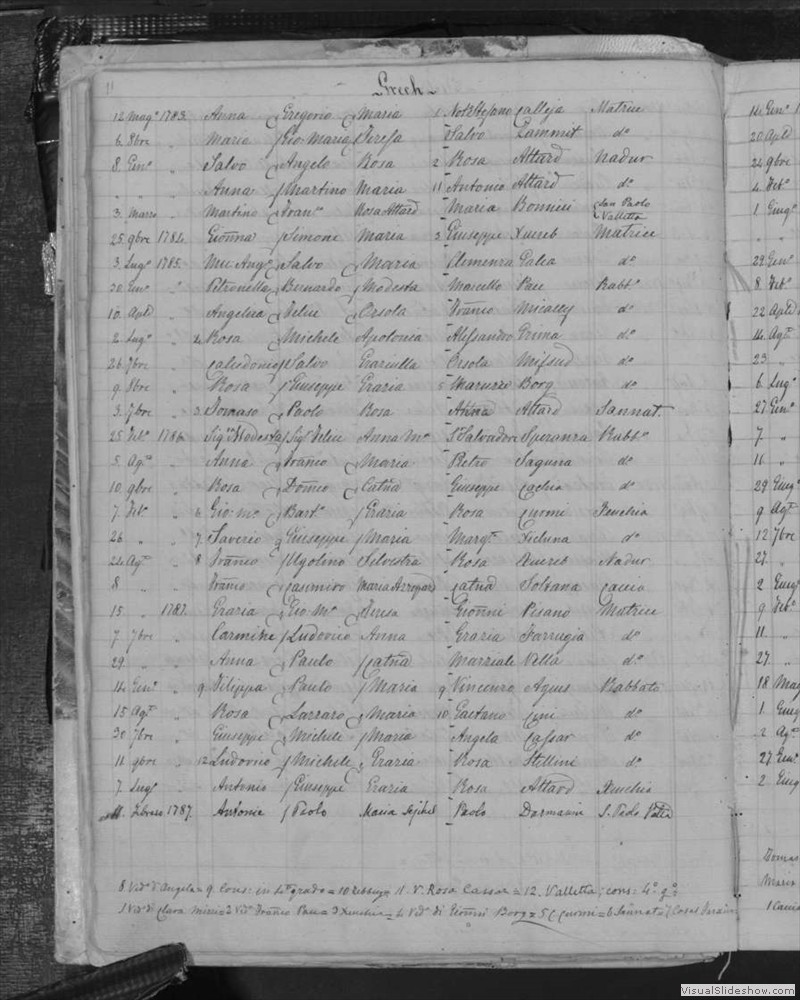 11
Grech
12 Mag.º 1783. Anna Gregorio Maria 1 Not.º Stefano Calleja Matrice
6. 8bre " Maria Gio: Maria Teresa Salvo Cammit dº
8. Gen.º " Salvo Angelo Rosa 2 Rosa Attard Nadur
" " Anna Martino Maria 11 Antonio Attard dº
3. Marzo " Martino Fran.co Rosa Attard Maria Bonnici San Paolo Valletta
25 9bre 1784. Gionna Simone Maria 3 Giuseppe Xuereb Matrice
3. Lug.º 1785. Salvo Maria Clemenza Galea dº
20. Gen.º " Petronella Bernardo Modesta Marcello Pace Rabb.º
10. Aple " Angelica Felice Orsola Franco Micallef dº
2. Lug.º " 4 Rosa Michele Apolonia Alessandro Grima dº
26. 7bre " Calcedonio Salvo Graziulla Orsola Mifsud dº
9. 8bre " Rosa Giuseppe Grazia 5 Maruzzo Borg dº
3. 7bre " 3. Tomaso Paolo Rosa Anna Attard Sannat.
25 Feb.º 1786. Sig.ra Modesta Sig.r Felice Anna M.ª Sr. Salvadore Speranza Rabb.º
5. Ag.º " Anna Franco Maria Pietro Saguna dº
10. 9bre " Rosa Domco Catna Giuseppe Cachia dº
7. Feb.º " 6 Gio: M.ª Bart.º Grazia Rosa Curmi Xeuchia
26 " " 7. Saverio Giuseppe Maria Marg.ta Xicluna dº
24 Ag.º " 8 Franco Ugolino Silvestra Rosa Xuereb Nadur
8 " " Franco Casimiro Maria Azzopard Catna Soltana Caccia
15. " 1787. Grazia Gio M.ª Teresa Gionni Pisano Matrice
7. 7bre " Carmine Ludovico Anna Grazia Farrugia dº
29 " " Anna Paulo Catna Marziale Vella dº
14 Gen.º " 9 Filippa Paulo Maria 9 Vincenzo Agius Rabbato
15 Ag.º " Rosa Lazzaro Maria 10 Gaetano Cini dº
30 7bre " Giuseppe Michele Maria Angela Cassar dº
11. 9bre " 12 Ludovico Michele Grazia Rosa Stellini dº
7. Lug.º " Antonio Giuseppe Grazia Rosa Attard Xeuchia
11. Febraro 1787. Antonie Paolo Maria Paolo Darmanin S. Paolo Vatta
8 Ved.º d'Angela = 9. Cons: in 4to grado = 10 11. V. Rosa Cassar = 12. Valletta; cons: 4º gº
1 Ved.º di Clara 2 Ved.º Franco Pace = 3 Xeuchia = 4 Ved.º di Gionni Borg = 5 C. Curmi = 6 Sannat = 7 Casal
14 Gen.º 1
20 Aple
24 9bre
4 Feb.º
1 Giug.º
29 Gen.º
8 Feb.º
22 Aple
14 Ag.º
23 "
6 Lug.º
27 Gen.º
7 "
16 "
29 Giug.º
9 Ag.º
12 7bre
27 "
2 Giug.º
9 Feb.º
11 "
27 "
18 Mag
1 Giug
2 Ag.º
27 Gen.º
2 Giug
Tomas
Maria
1 Caccia
VisualSlideshow.com